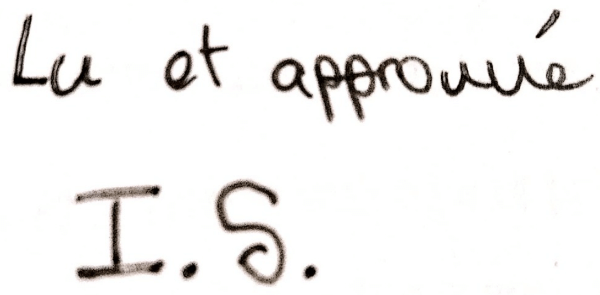 Lu et approuvé
I.S.